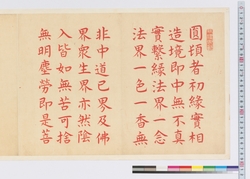 圓頓者初緣實相
造境即中無不真
實繫緣法界一念
法界一色一香無
非中道己界及佛
界衆生界亦然陰
入皆如無苦可捨
無明塵勞即是菩